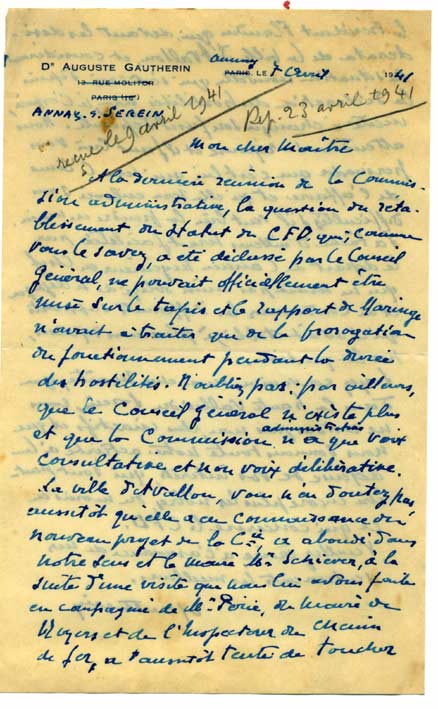 Dr AUGUSTE GAUTHERIN
12 RUE MOLITOR
PARIS (16e)
ANNAY. S. SEREIN
Annay
PARIS, LE 7 Avril 1941
recue le 9 avril 1941
Rep. 23 avril 1941
Mon cher Maître
A la dernière réunion de la Commis-
sion administrative, la question du réta-
blissement du statut du C.F.D. qui, comme
vous le savez, a été déclassé par le Conseil
Général, ne pouvait officiellement être
mise sur le tapis et le rapport de Maringe
n'avait à traiter que de la prorogation
du fonctionnement pendant la durée
des hostilités. N'oubliez pas, par ailleurs,
que le Conseil Général n'existe plus
et que la Commission administrative n'a que voix
consultative et non voix délibérative.
La ville d'Avallon, vous n'en doutez pas
aussitôt qu'elle a eu connaissance du
nouveau projet de la Cie a abondé dans
notre sens et le maire Mr Schiever, à la
suite d'une visite que nous lui avons faite
en compagnie de Mr Périe, du Maire de
Noyers et de l'Inspecteur du Chemin
de fer, a aussitôt tenté de toucher